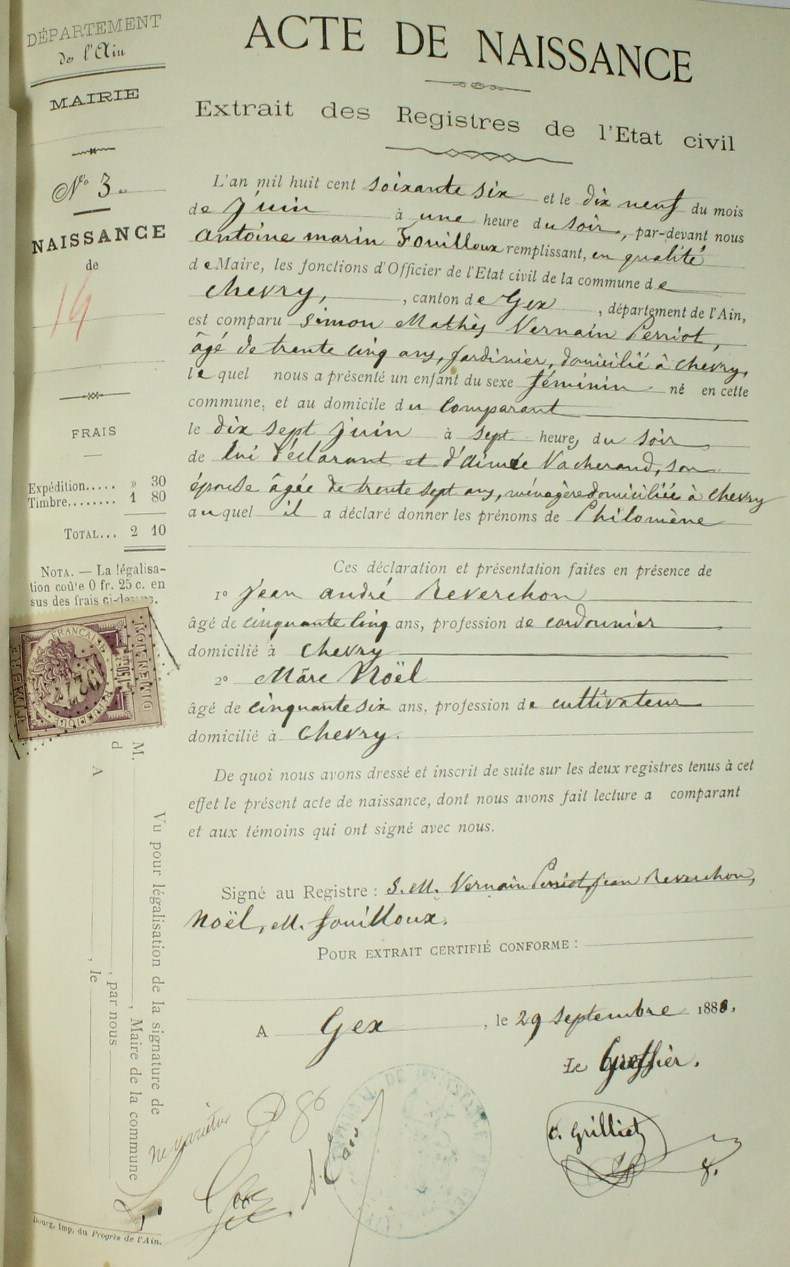 DÉPARTEMENT
de l'Ain
MAIRIE
N° 3
NAISSANCE
de
14
FRAIS
Expédition..... » 30
Timbre........ 1 80
TOTAL... 2 10
NOTA. — La légalisa-
tion coûte 0 fr. 25 c. en
sus des frais ci-dessus.
ACTE DE NAISSANCE
Extrait des Registres de l'Etat civil
L'an mil huit cent soixante six et le dix neuf du mois
de juin à une heure du soir, par-devant nous
antoine marin Fouilloux remplissant, en qualité
de Maire, les fonctions d'Officier de l'Etat civil de la commune de
Chevry, , canton de Gex , département de l'Ain,
est comparu Simon Mathès Vernain Perriot,
âgé de trente cinq ans, jardinier, domicilié à Chevry,
le quel nous a présenté un enfant du sexe féminin né en cette
commune, et au domicile du Comparant
le dix sept juin à sept heures du soir
de lui déclarant et d'aimée Vacherand, son
épouse âgée de trente sept ans, ménagère domiciliée à Chevry
auquel il a déclaré donner les prénoms de Philomène
Ces déclaration et présentation faites en présence de
1° Jean andré Reverchon
âgé de cinquante cinq ans, profession de cordonnier
domicilié à Chevry
2° Marc Noël
âgé de cinquante six ans, profession de cultivateur
domicilié à Chevry.
De quoi nous avons dressé et inscrit de suite sur les deux registres tenus à cet
effet le présent acte de naissance, dont nous avons fait lecture a comparant
et aux témoins qui ont signé avec nous.
Signé au Registre : S. M. Vernain Perriot, Jean Reverchon,
Noël, M. fouilloux.
POUR EXTRAIT CERTIFIÉ CONFORME :
A Gex , le 29 septembre 1888.
Le Greffier.
Grilliet
Vu pour légalisation de la signature de
M. , Maire de la commune
d , par nous
A , le
ne varietur
Bourg, Imp. du Progrès de l'Ain.